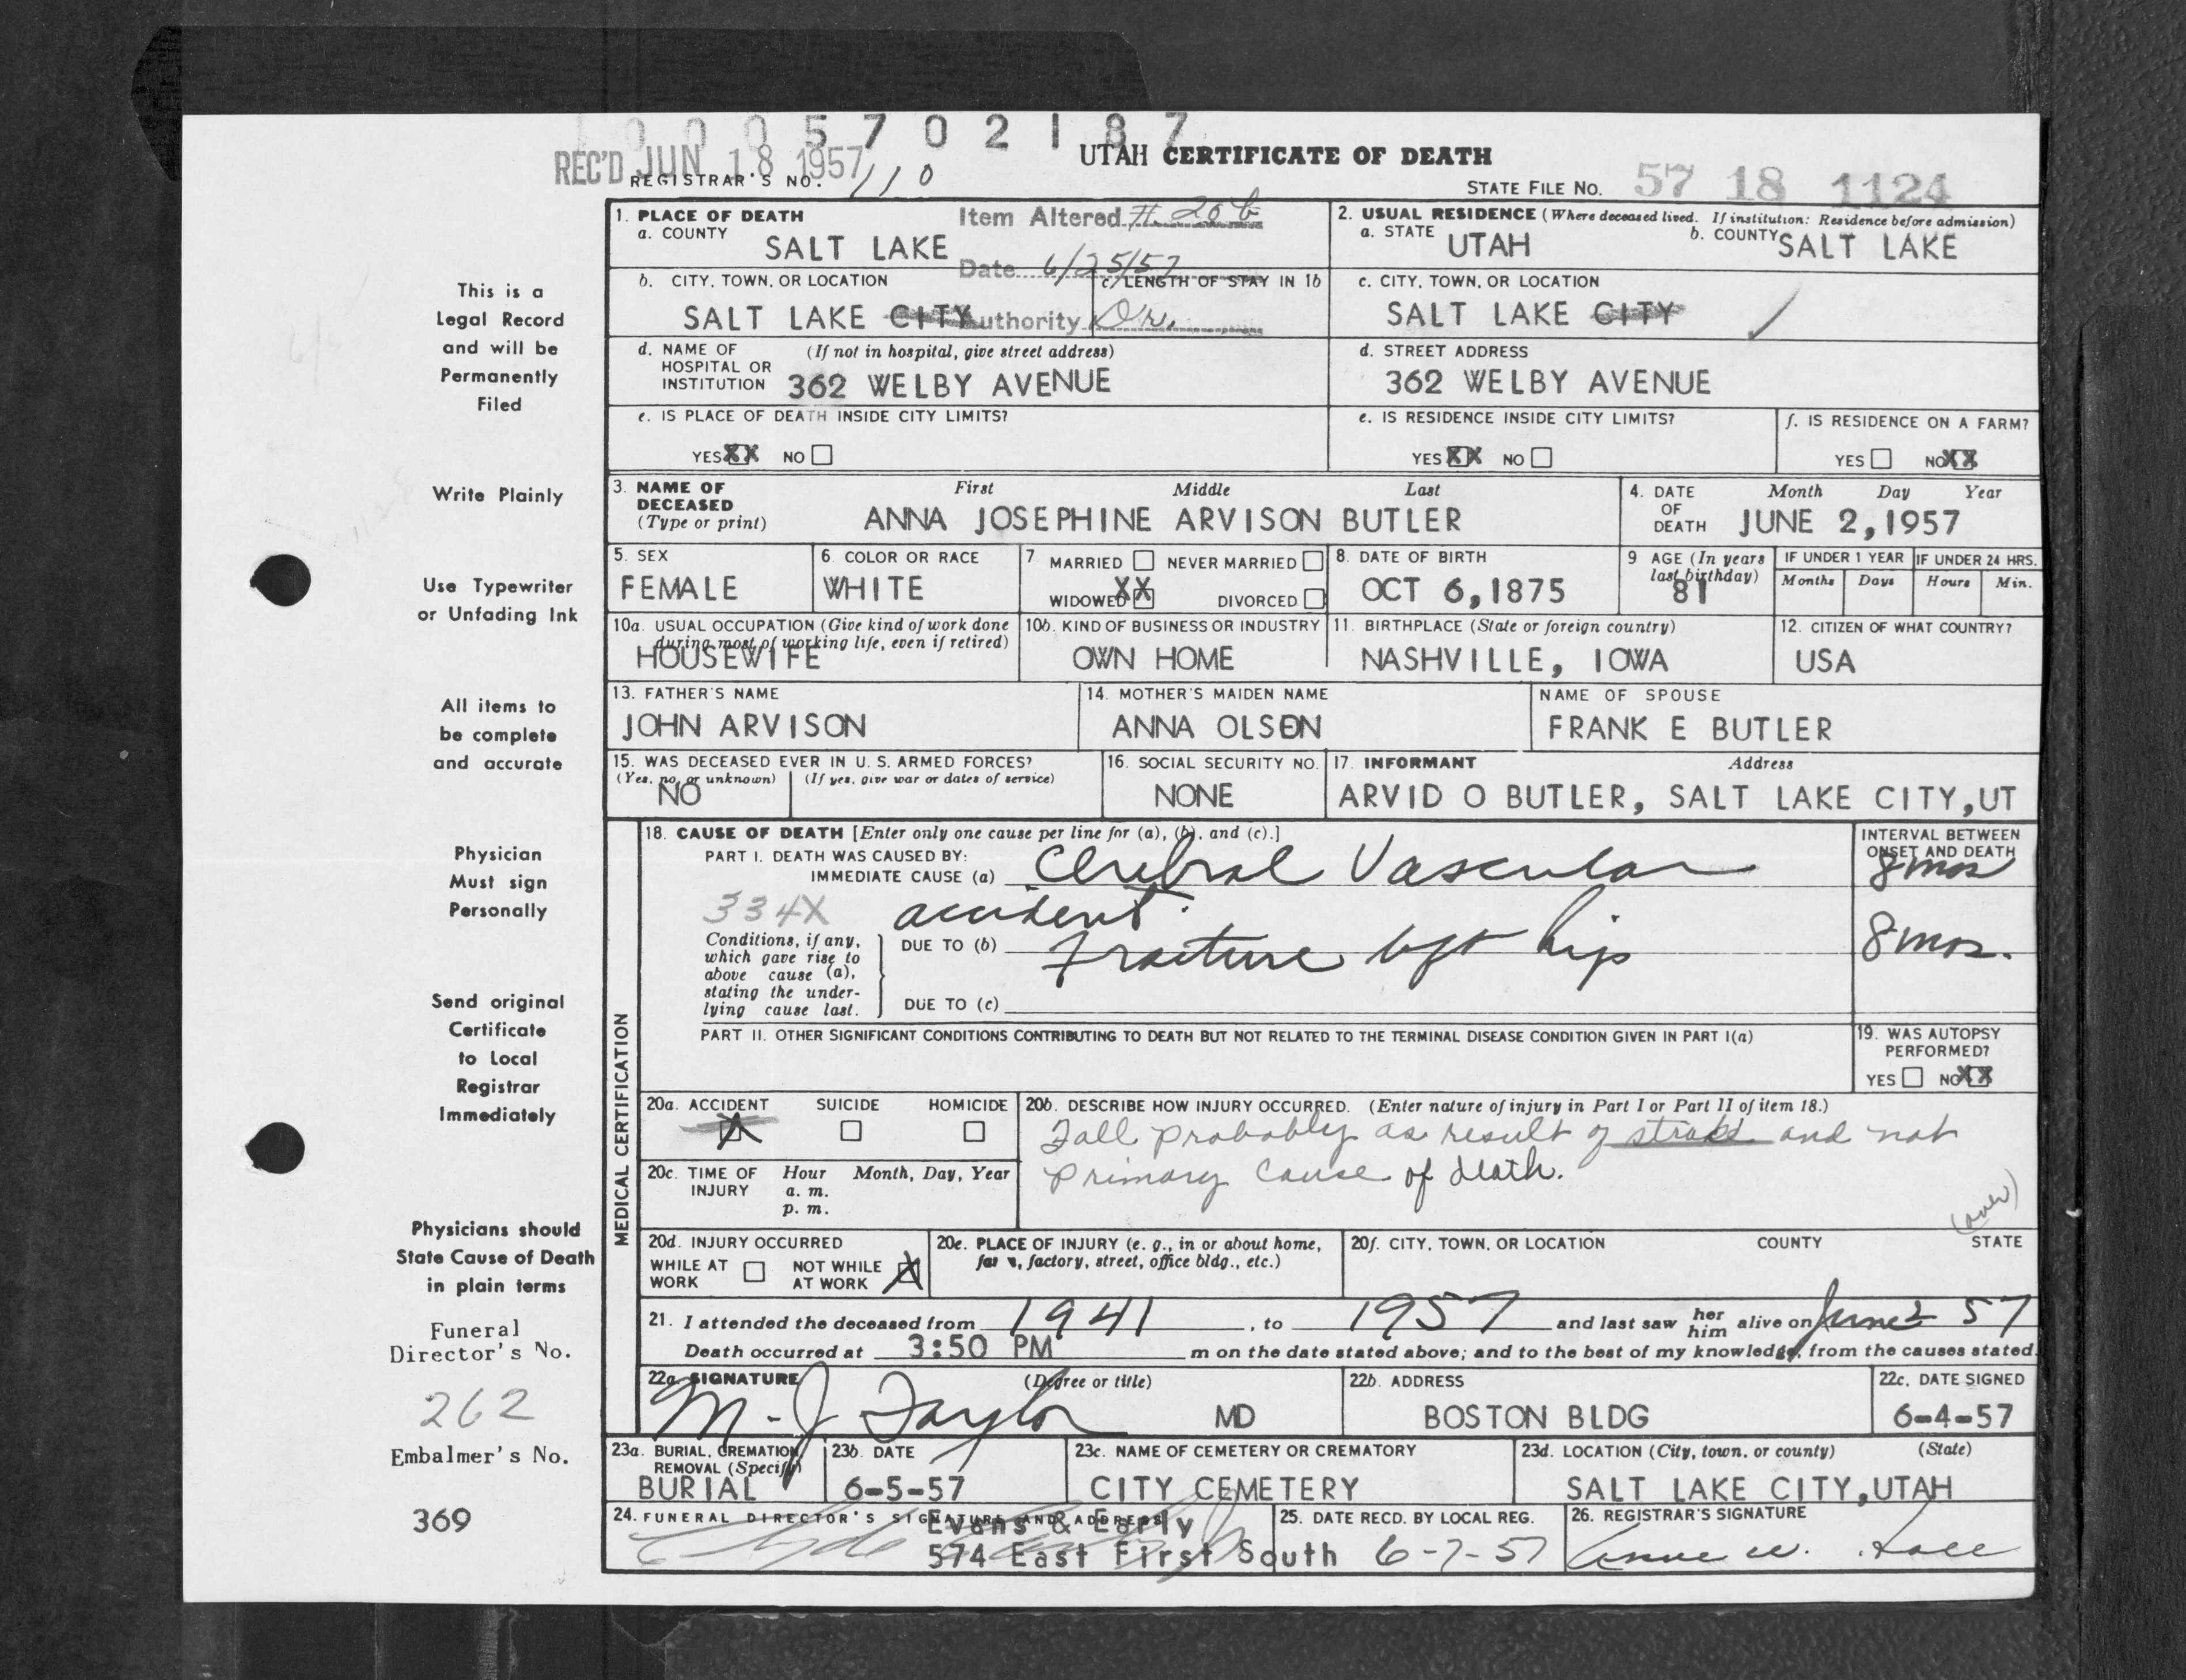 1 0 0 0 5 7 0 2 1 8 7
REC'D JUN 18 1957
UTAH CERTIFICATE OF DEATH
REGISTRAR'S NO. 110
STATE FILE NO. 57 18 1124
1. PLACE OF DEATH
a. COUNTY SALT LAKE
Item Altered # 20b
Date 6/25/57
Authority Dr.
2. USUAL RESIDENCE (Where deceased lived. If institution: Residence before admission)
a. STATE UTAH b. COUNTY SALT LAKE
b. CITY, TOWN, OR LOCATION
SALT LAKE CITY
c. LENGTH OF STAY IN 1b
c. CITY, TOWN, OR LOCATION
SALT LAKE CITY
d. NAME OF HOSPITAL OR INSTITUTION (If not in hospital, give street address)
362 WELBY AVENUE
d. STREET ADDRESS
362 WELBY AVENUE
e. IS PLACE OF DEATH INSIDE CITY LIMITS?
YES XX NO
e. IS RESIDENCE INSIDE CITY LIMITS?
YES XX NO
f. IS RESIDENCE ON A FARM?
YES NO XX
3. NAME OF DECEASED (Type or print)
First Middle Last
ANNA JOSEPHINE ARVISON BUTLER
4. DATE OF DEATH Month Day Year
JUNE 2,1957
5. SEX
FEMALE
6. COLOR OR RACE
WHITE
7. MARRIED NEVER MARRIED
WIDOWED XX DIVORCED
8. DATE OF BIRTH
OCT 6,1875
9 AGE (In years last birthday)
81
IF UNDER 1 YEAR
Months Days
IF UNDER 24 HRS.
Hours Min.
10a. USUAL OCCUPATION (Give kind of work done during most of working life, even if retired)
HOUSEWIFE
10b. KIND OF BUSINESS OR INDUSTRY
OWN HOME
11. BIRTHPLACE (State or foreign country)
NASHVILLE, IOWA
12. CITIZEN OF WHAT COUNTRY?
USA
13. FATHER'S NAME
JOHN ARVISON
14. MOTHER'S MAIDEN NAME
ANNA OLSEN
NAME OF SPOUSE
FRANK E BUTLER
15. WAS DECEASED EVER IN U. S. ARMED FORCES?
(Yes, no, or unknown) (If yes, give war or dates of service)
NO
16. SOCIAL SECURITY NO.
NONE
17. INFORMANT Address
ARVID O BUTLER, SALT LAKE CITY,UT
MEDICAL CERTIFICATION
18. CAUSE OF DEATH [Enter only one cause per line for (a), (b), and (c).]
PART I. DEATH WAS CAUSED BY:
IMMEDIATE CAUSE (a) Cerebral Vascular
accident
334X
INTERVAL BETWEEN ONSET AND DEATH
8 mos
Conditions, if any, which gave rise to above cause (a), stating the underlying cause last.
DUE TO (b) Fracture left hip
8 mos.
DUE TO (c)
PART II. OTHER SIGNIFICANT CONDITIONS CONTRIBUTING TO DEATH BUT NOT RELATED TO THE TERMINAL DISEASE CONDITION GIVEN IN PART I(a)
19. WAS AUTOPSY PERFORMED?
YES NO XX
20a. ACCIDENT SUICIDE HOMICIDE
X
20b. DESCRIBE HOW INJURY OCCURRED. (Enter nature of injury in Part I or Part II of item 18.)
Fall probably as result of stroke and not
primary cause of death.
(over)
20c. TIME OF INJURY Hour Month, Day, Year
a. m.
p. m.
20d. INJURY OCCURRED
WHILE AT WORK NOT WHILE AT WORK X
20e. PLACE OF INJURY (e. g., in or about home, farm, factory, street, office bldg., etc.)
20f. CITY, TOWN, OR LOCATION COUNTY STATE
21. I attended the deceased from 1941, to 1957 and last saw her him alive on June 2 57
Death occurred at 3:50 PM m on the date stated above; and to the best of my knowledge, from the causes stated.
22a. SIGNATURE (Degree or title)
M. J. Taylor MD
22b. ADDRESS
BOSTON BLDG
22c. DATE SIGNED
6-4-57
23a. BURIAL, CREMATION, REMOVAL (Specify)
BURIAL
23b. DATE
6-5-57
23c. NAME OF CEMETERY OR CREMATORY
CITY CEMETERY
23d. LOCATION (City, town, or county) (State)
SALT LAKE CITY,UTAH
24. FUNERAL DIRECTOR'S SIGNATURE AND ADDRESS
Evans & Early
574 East First South
25. DATE RECD. BY LOCAL REG.
6-7-57
26. REGISTRAR'S SIGNATURE
Anne W.
This is a
Legal Record
and will be
Permanently
Filed
Write Plainly
Use Typewriter
or Unfading Ink
All items to
be complete
and accurate
Physician
Must sign
Personally
Send original
Certificate
to Local
Registrar
Immediately
Physicians should
State Cause of Death
in plain terms
Funeral
Director's No.
262
Embalmer's No.
369